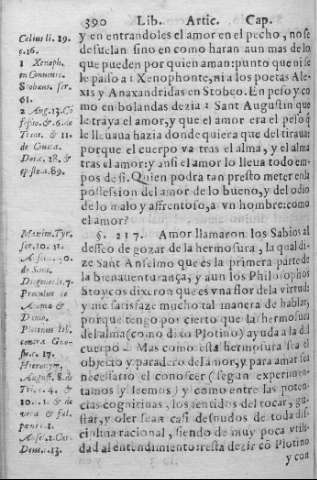 390 Lib. Artic. Cap.
y en entrandoles el amor en el pecho, no se
desuelan sino en como haran aun mas de lo
que pueden por quien aman: punto que ni se
le passo a 1 Xenophonte, ni a los poetas Ale-
xis y Anaxandridas en Stobeo. En peso y co
mo en bolandas dezia 2 Sant Augustin que
le traya el amor, y que el amor era el peso q̃
le lleuaua hazia donde quiera que del tiraua:
porque el cuerpo va tras el alma, y el alma
tras el amor: y ansi el amor lo lleua todo em-
pos de si. Quien podra tan presto meter en la
possession del amor de lo bueno, y del odio
de lo malo y affrentoso, a vn hombre: como
el amor?
§. 217. Amor llamaron los Sabios al
desseo de gozar de la hermosura, la qual di-
ze Sant Anselmo que es la primera parte de
la bienauenturança, y aun los Philosophos
Stoycos dixeron que es vna flor de la virtud
y me satisfaze mucho tal manera de hablar,
porque tengo por cierto que la hermosura
del alma (como dixo Plotino) ayuda a la del
cuerpo. Mas como esta hermosura sea el
objecto y paradero del amor, y para amar sea
necessario el conoscer (segun experimen-
tamos y leemos) y como entre las poten-
cias cognitiuas, los sentidos del tocar, gu-
star, y oler sean casi desnudos de toda dis-
ciplina racional, siendo de muy poca vtili-
dad al entendimiento: resta dezir cõ Plotino
y con
Celius li. 29.
c. 16.
1 Xenoph.
in Conuiuio.
Stobæus ser.
61.
2 Aug. 13. Cõ
fessio. &. 6. de
Trini. & 11.
de Ciuita.
Dei c. 28. &
epistola. 89.
Maxim. Tyr.
ser. 10. 11.
Diogenes li. 7.
Proculus in
Anima &
Plotinus lib.
contra Gno-
sti. c. 17.
Hieronym.
August. 8. de
Tri. c. 4. &
10. c. 1. & de